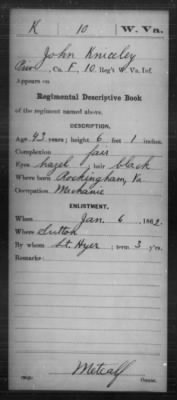 K 10 W. Va.
John Kniceley
Priv, Co. F, 10 Reg't W. Va. Inf.
Appears on
Regimental Descriptive Book
of the regiment named above.
DESCRIPTION.
Age 43 years; height 6 feet 1 inches.
Complexion fair
Eyes hazel; hair black
Where born Rockingham, Va
Occupation Mechanic
ENLISTMENT.
When Jan. 6, 1862.
Where Sutton
By whom Lt. Hyer; term 3 y'rs.
Remarks:
Metcalf
Copyist.